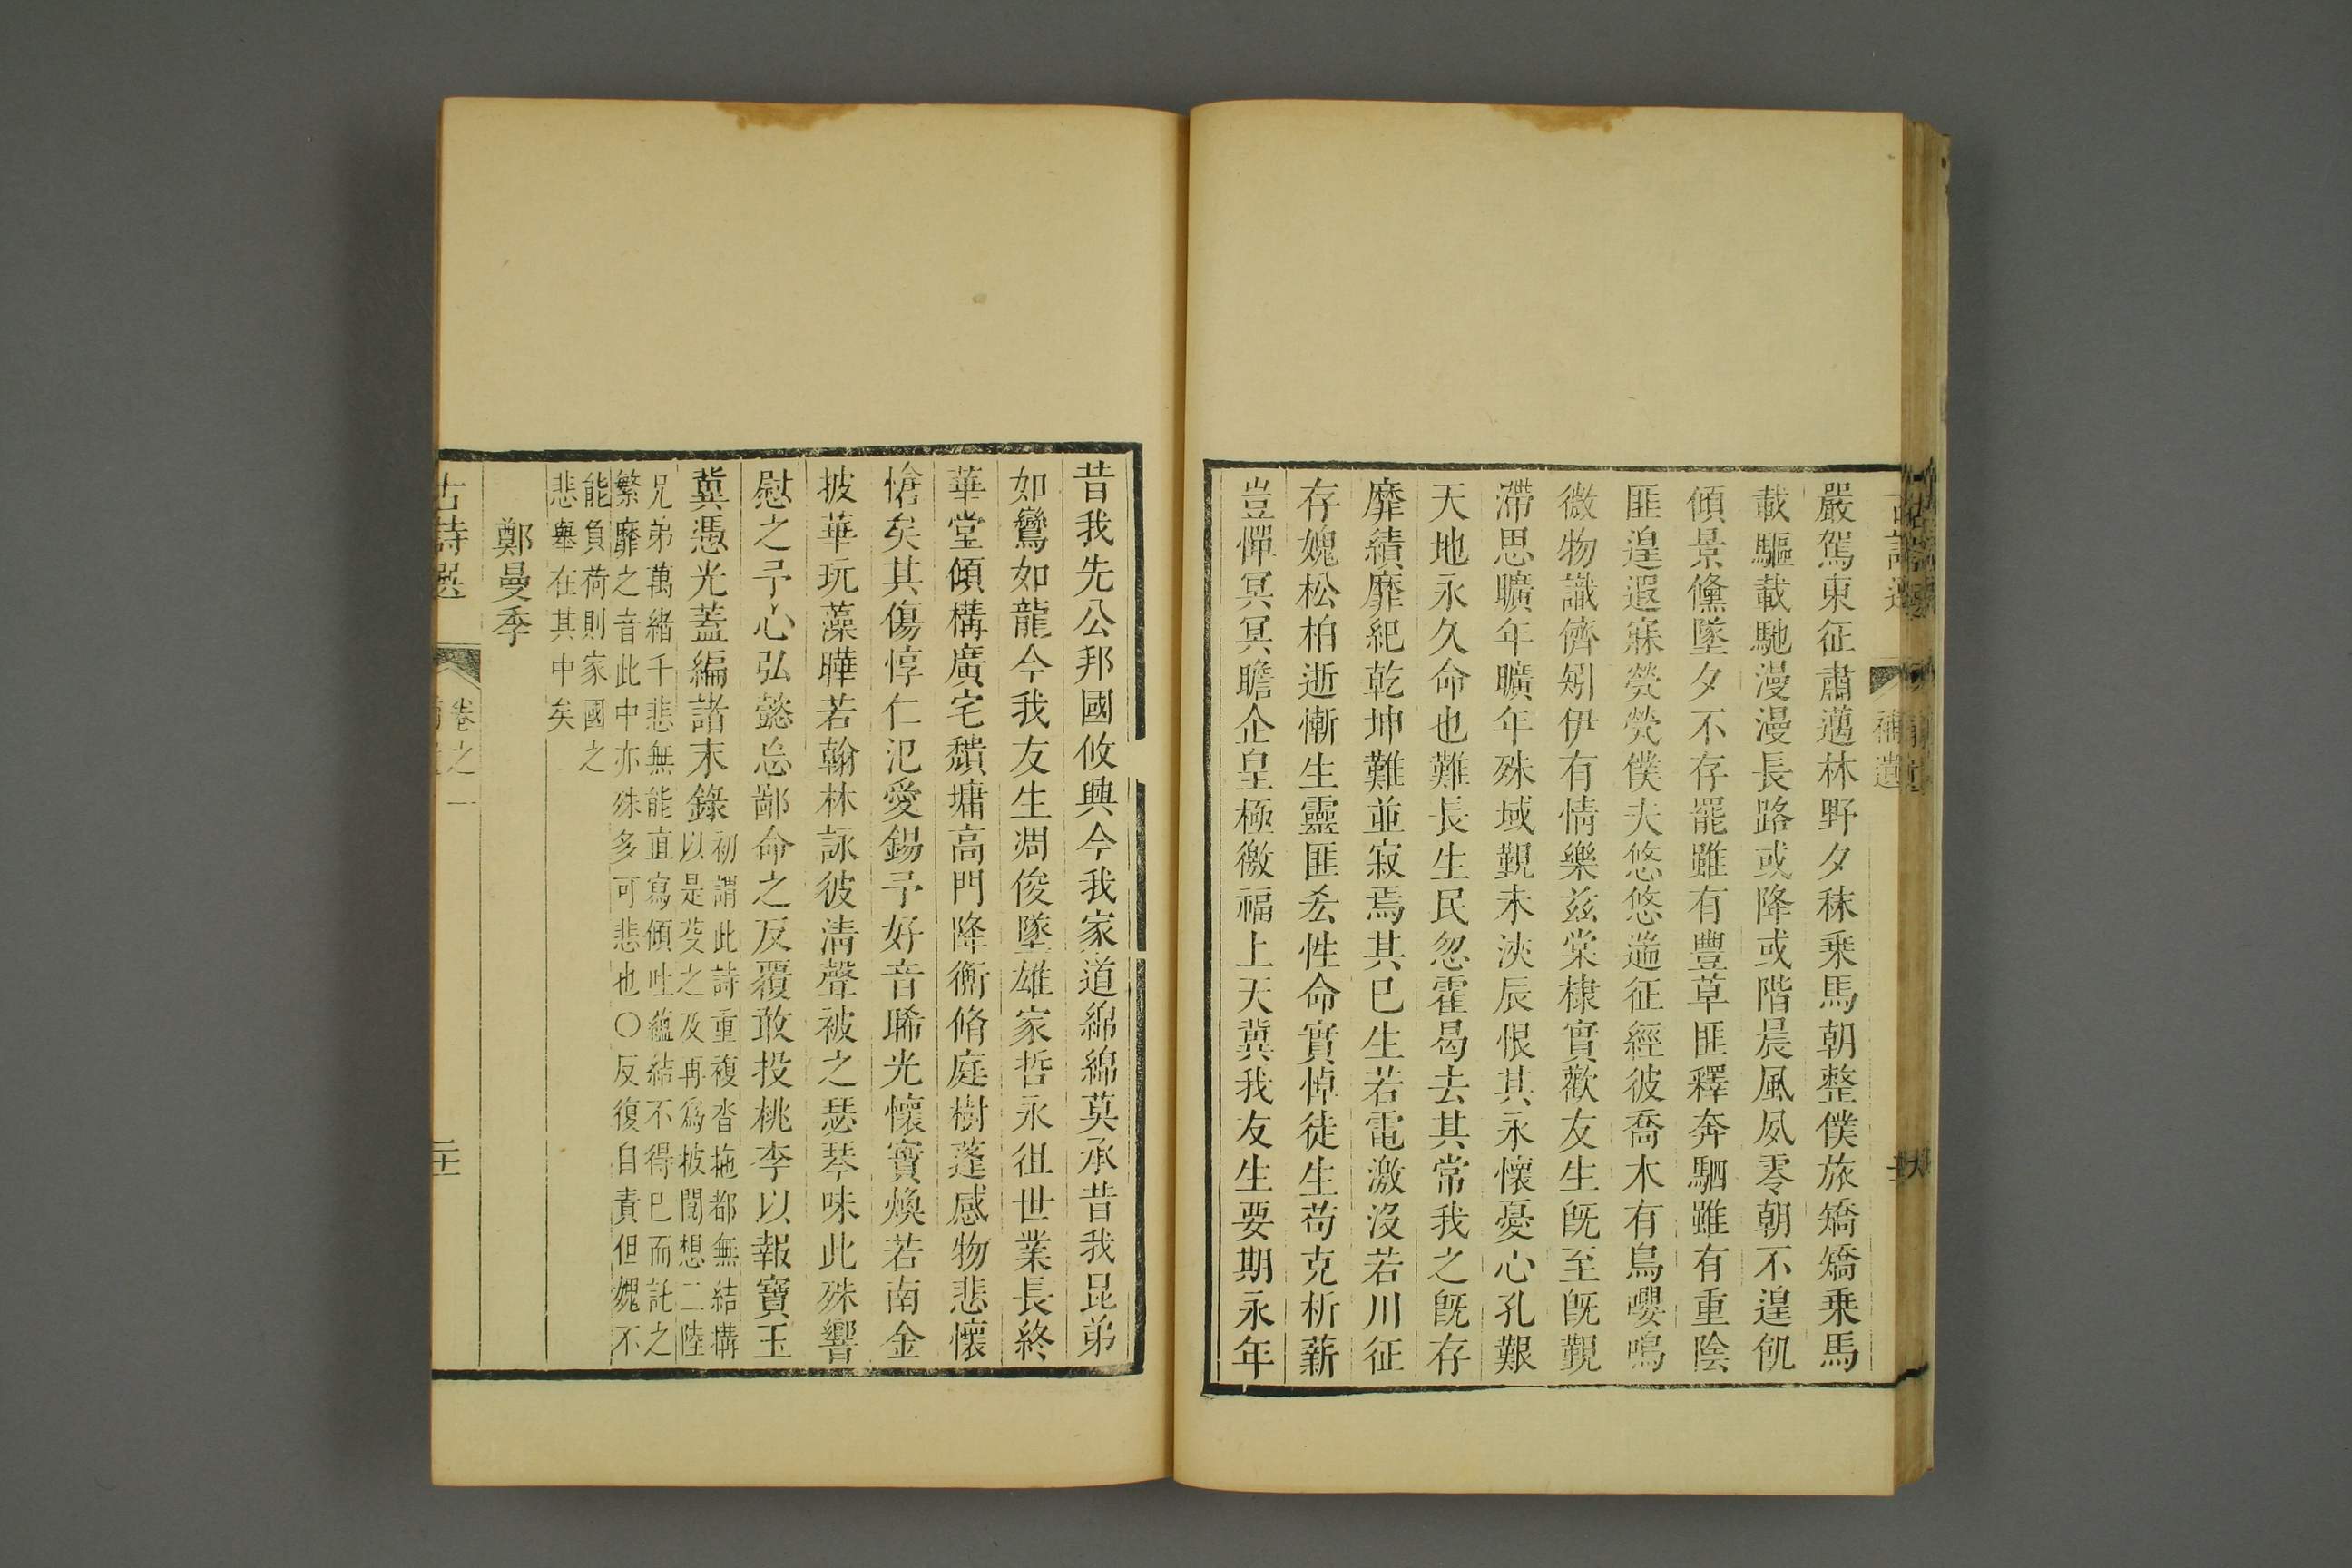 嚴駕東征肅邁林野夕秣乗馬朝整僕旅矯矯乗馬
載驅載馳漫漫長路或降或階晨風夙零朝不遑飢
傾景儵墜夕不存罷雖有豐草匪釋奔駟雖有重陰
匪遑遐寐煢煢僕夫悠悠遄征經彼喬木有鳥嚶鳴
微物識儕矧伊有情樂兹棠棣實歡友生旣至旣覯
滯思曠年曠年殊域覯未浹辰恨其永懷憂心孔艱
天地永久命也難長生民忽霍曷去其常我之旣存
靡績靡紀乾坤難並寂焉其已生若電激没若川征
存媿松柏逝慚生靈匪吝性命實悼徒生苟克析薪
豈憚冥冥瞻企皇極徼福上天冀我友生要期永年
昔我先公邦國攸興今我家道綿綿莫承昔我昆弟
如鸞如龍今我友生凋俊墜雄家哲永徂世業長終
華堂傾構廣宅穨墉高門降衡脩庭樹蓬感物悲懷
愴矣其傷惇仁氾愛錫予好音睎光懷寶煥若南金
披華玩藻曄若翰林詠彼清聲被之瑟琴味此殊響
慰之予心弘懿忘鄙命之反覆敢投桃李以報寶玉
冀憑光葢編諸末錄初謂此詩重複沓拖都無結搆
以是芟之及再爲披閱想二陸
兄弟萬緒千悲無能直寫傾吐蘊結不得已而託之
繁靡之音此中亦殊多可悲也〇反復自責但媿不
能負荷則家國之
悲舉在其中矣
鄭曼季
古詩選
卷之一
二十